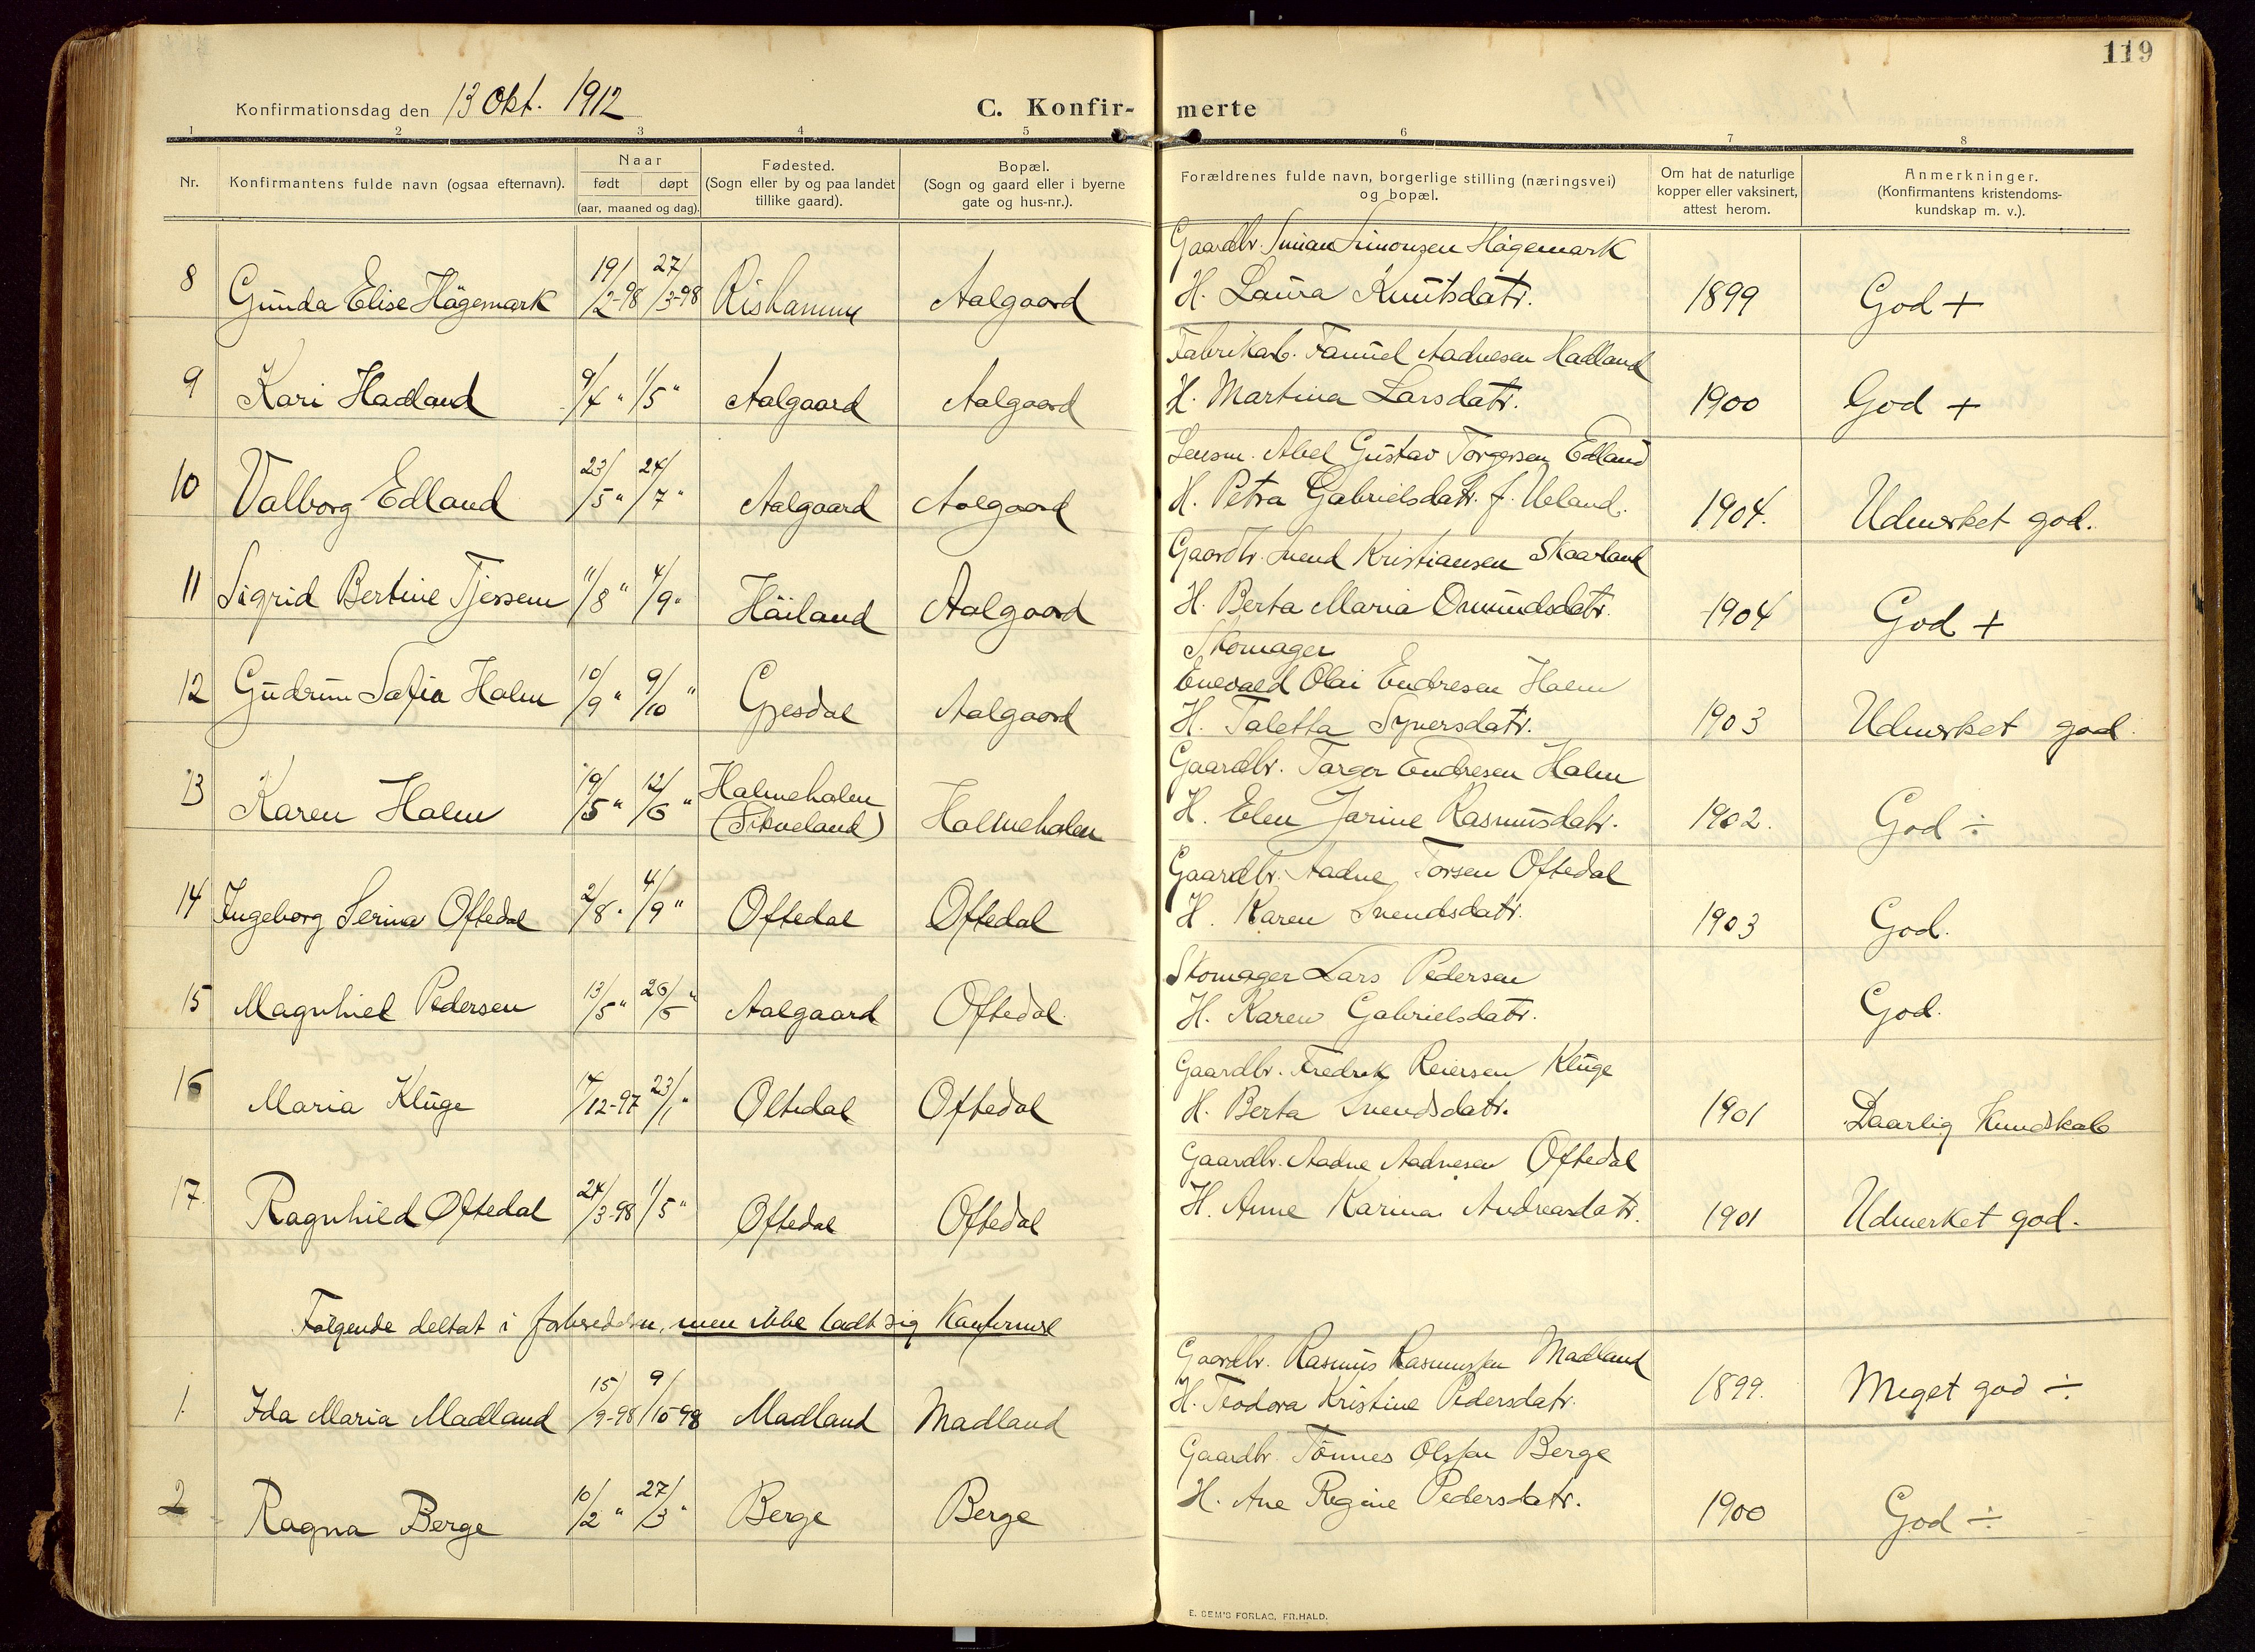 119
Konfirmationsdag den 13 Okt. 1912
C. Konfir- merte
1 2 3 4 5 6 7 8
Nr.
Konfirmantens fulde navn (ogsaa efternavn).
Naar
født døpt
(aar, maaned og dag).
Fødested.
(Sogn eller by og paa landet
tillike gaard).
Bopæl.
(Sogn og gaard eller i byerne
gate og hus-nr.).
Forældrenes fulde navn, borgerlige stilling (næringsvei)
og bopæl.
Om hat de naturlige
kopper eller vaksinert,
attest herom.
Anmerkninger.
(Konfirmantens kristendoms-
kundskap m. v.).
Gaardbr. Simonsen Högemark
8 Gunda Elise Högemark 19/2-98 27/3-98 Aalgaard H. Laura Knutsdatr. 1899 God +
Fabrikarb. Aadnesen Hadland
9 Kari Hadland 9/4 " 1/5 " Aalgaard Aalgaard H. Martina Larsdatr. 1900 God +
Lensm. Abel Gustav Torgersen Edland
10 Valborg Edland 23/5 " 24/7 " Aalgaard Aalgaard H. Petra Gabrielsdatr. f. Ueland. 1904. Udmerket god.
Gaardbr. Svend Kristiansen Skaarland
11 Sigrid Bertine Tjessem 11/8 " 4/9 " Häiland Aalgaard H. Berta Maria Omundsdatr. 1904 God +
Skomager
Enevald Olai Endresen Halm
12 Gudrun Sofia Halm 10/9 " 9/10 " Gjesdal Aalgaard H. Taletta Syversdatr. 1903 Udmerket god.
Gaardbr. Endresen Halm
13 Karen Halm 19/5 " 12/6 " Halmeholen
(Sikveland) Halmeholen H. Elen Jarine Rasmusdatr. 1902. God ÷
Gaardbr. Aadne Torsen Oftedal
14 Ingeborg Serina Oftedal 2/8 " 4/9 " Oftedal Oftedal H. Karen Svendsdatr. 1903 God.
Skomager Lars Pedersen
15 Magnhild Pedersen 13/5 " 26/6 " Aalgaard Oftedal. H. Karen Gabrielsdatr. God.
Gaardbr. Fredrik Reiersen Kluge
16 Maria Kluge /12-97 23/1 " Oltedal Oftedal H. Berta Svendsdatr. 1901 Daarlig Kundskab
Gaardbr. Aadne Aadnesen Oftedal
17. Ragnhild Oftedal 24/3-98 1/5 " Oftedal Oftedal H. Anne Karina Andreasdatr. 1901 Udmerket god.
Følgende deltat i forbereddsn, men ikke ladt sig Konfirmere
Gaardbr. Rasmus Rasmussen Madland
1. Ida Maria Madland 15/9-98 9/10-98 Madland Madland H. Teodora Kristine Pedersdatr. 1899. Meget god ÷
Gaardbr. Tönnes Olssen Berge
2 Ragna Berge 10/2 " 27/3 " Berge Berge H. Ane Regine Pedersdatr. 1900 God ÷
E. SEM'S FORLAG, FR.HALD.